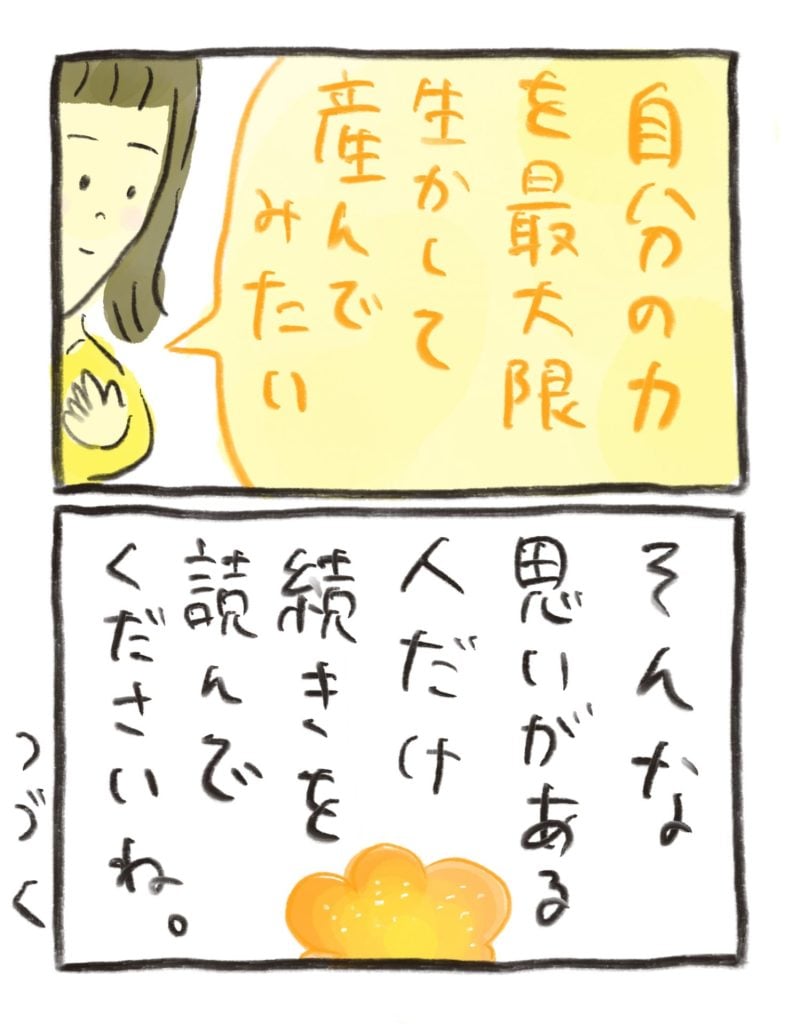 自分の力
を最大限
生かして
産んで
みたい
そんな
思いがある
人だけ
続きを
読んで
くださいね。
つづく